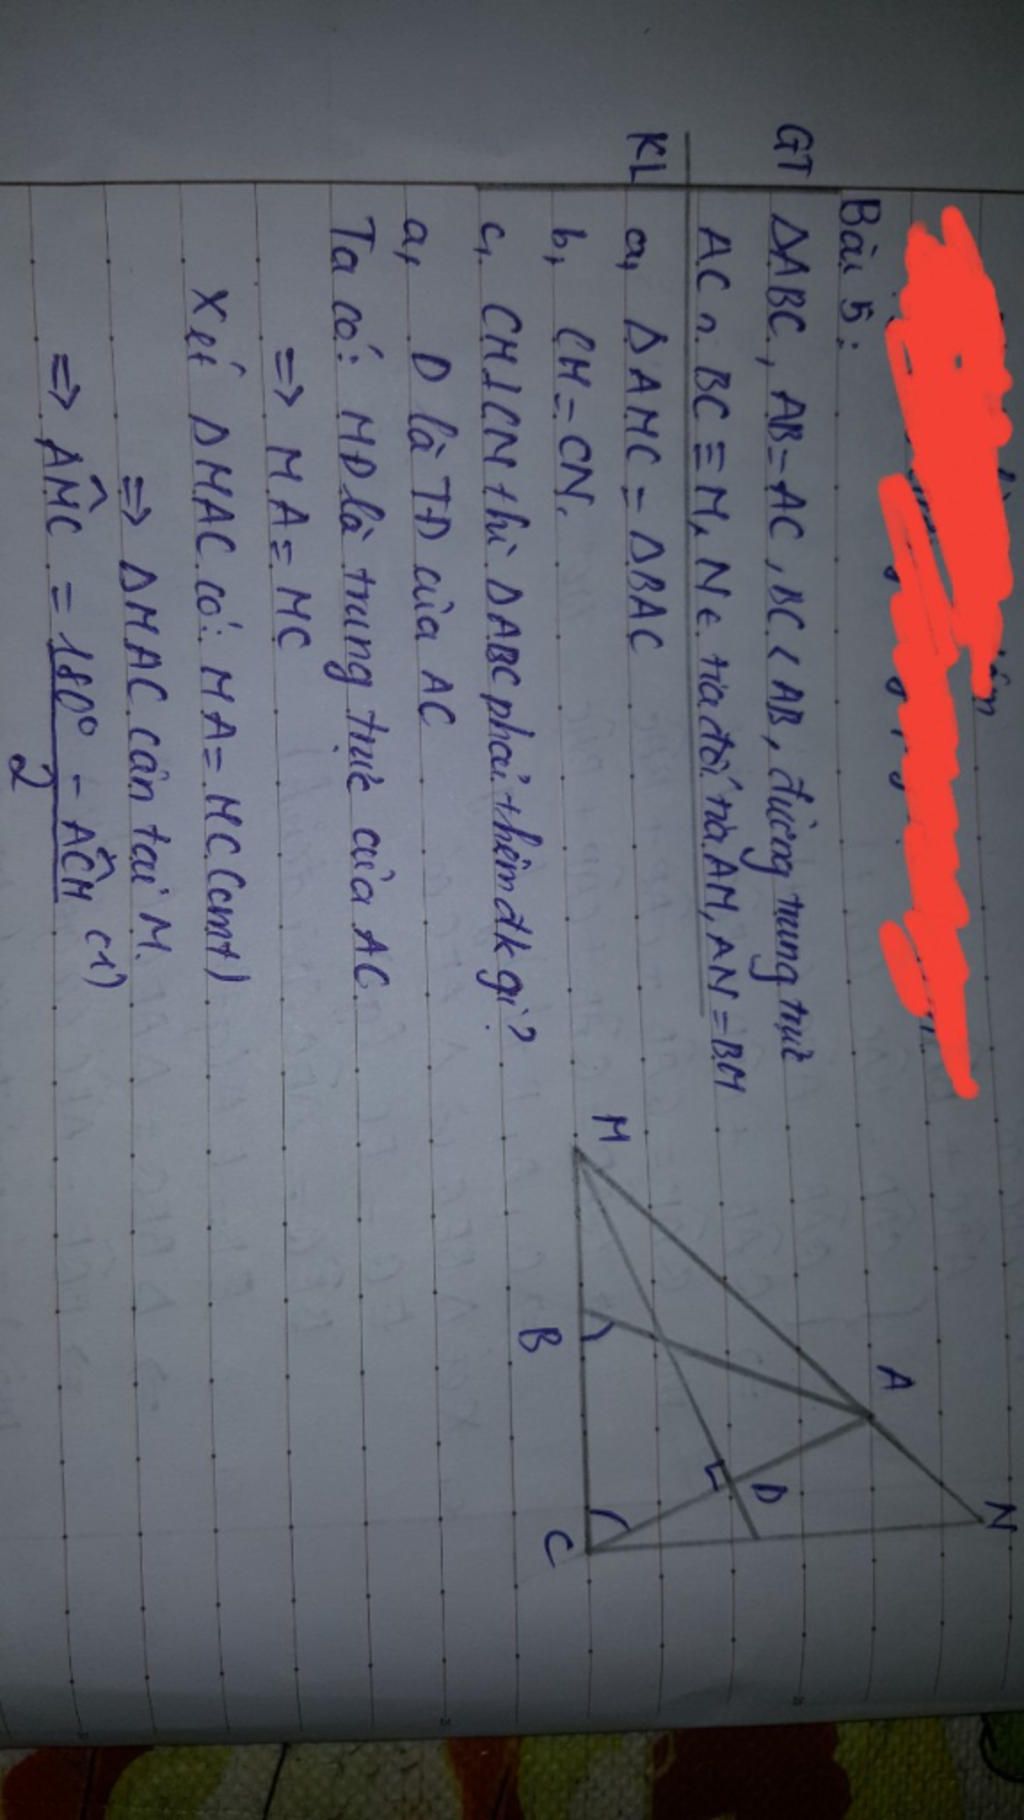 Bài 5:
GT ΔABC, AB=AC, BC<AB, đường trung trực
AC ∩ BC ≡ M, N ∈ tia đối tia AM, AN=BM
KL a, ΔAMC = ΔBAC
b, CM=CN.
c, CM⊥CN thì ΔABC phải thêm đk gì?
a, D là TĐ của AC
Ta có: MD là trung trực của AC
=> MA=MC
Xét ΔMAC có: MA=MC(cmt)
=> ΔMAC cân tại M.
=> AM̂C = 180° - AĈM (1)
2
M
B
C
A
D
N